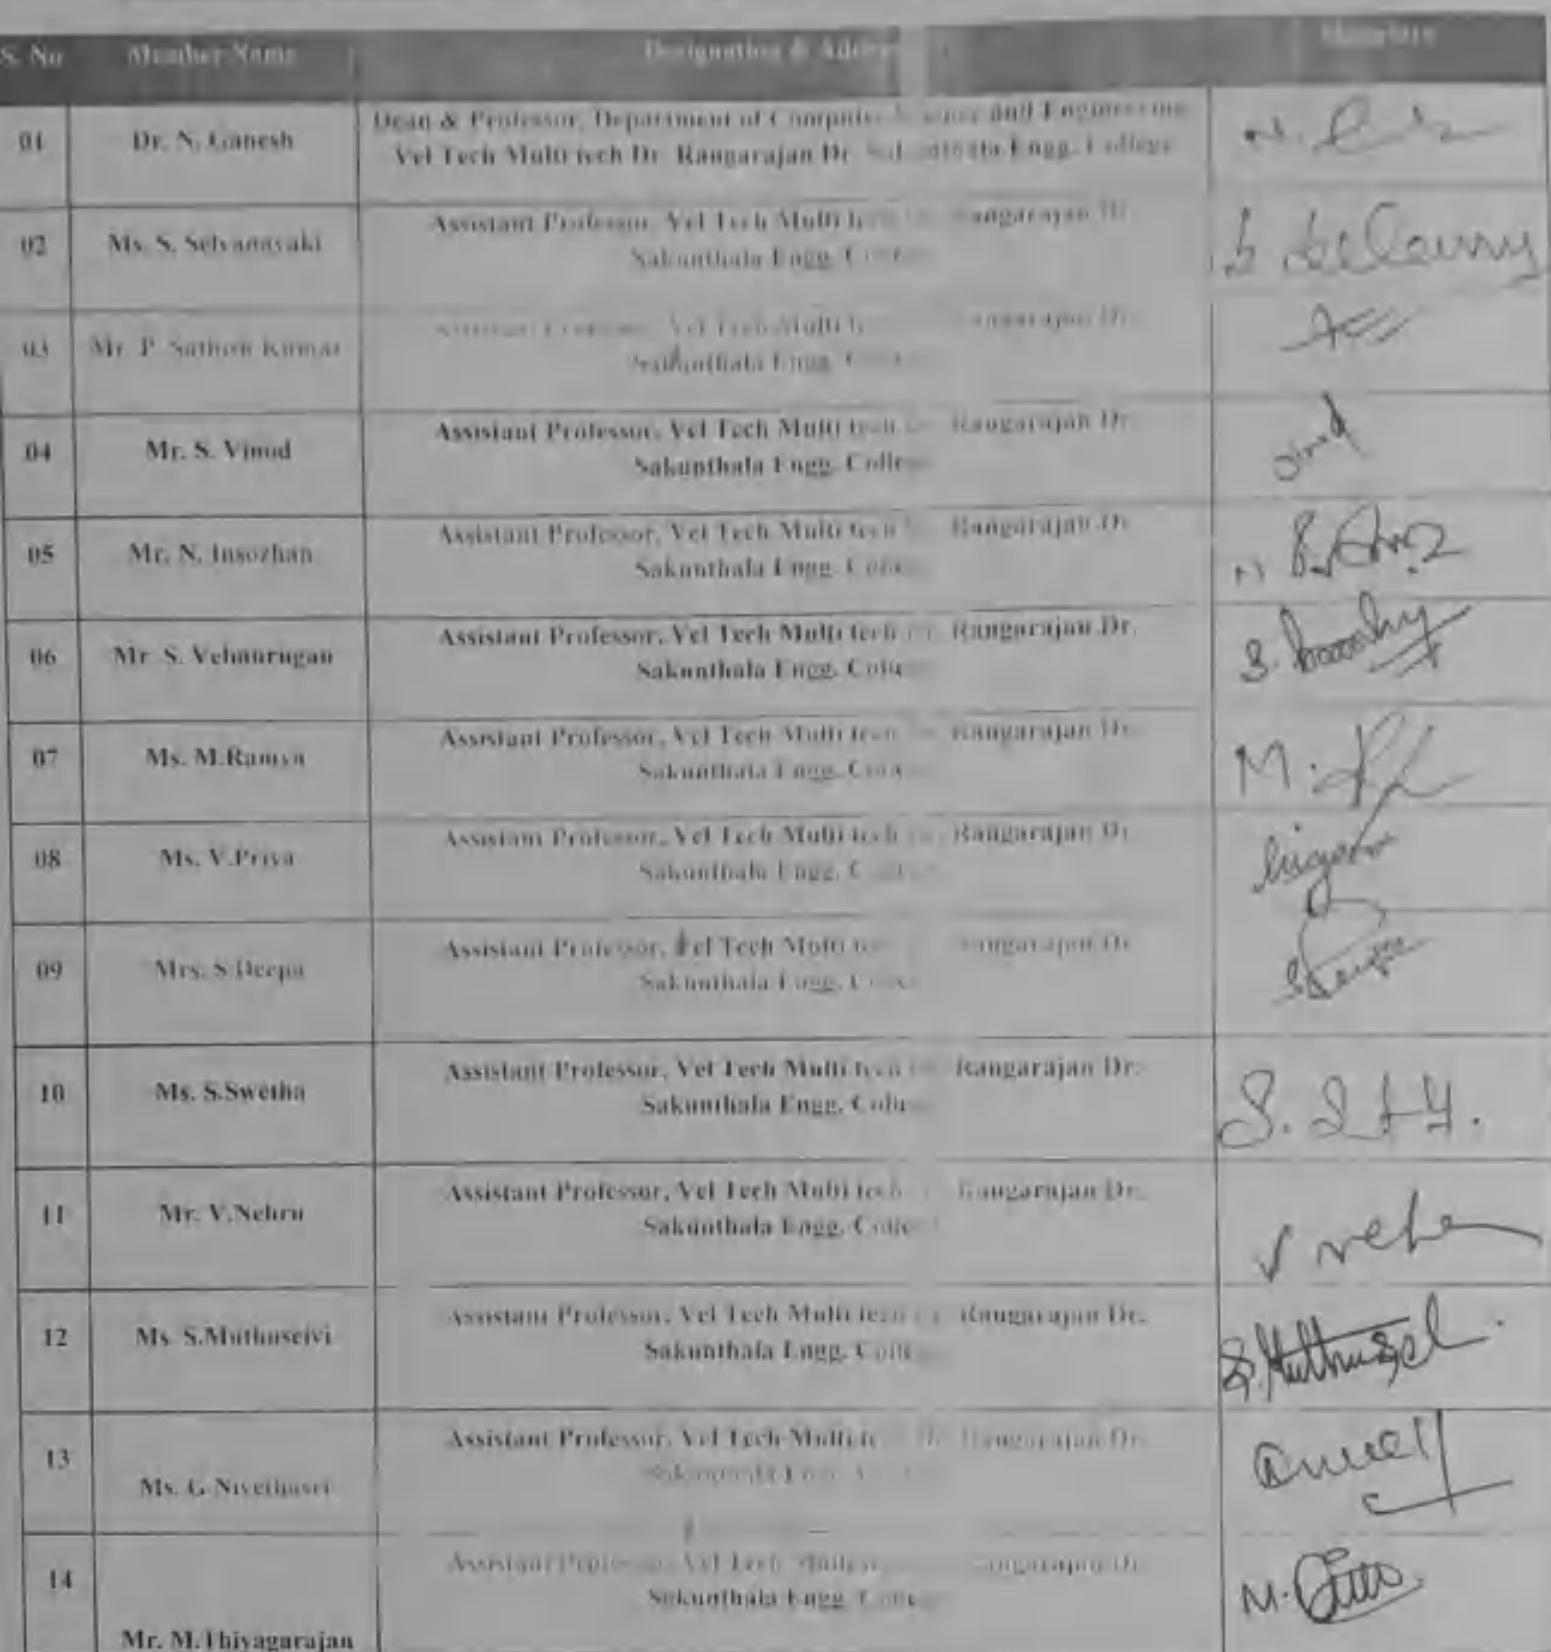 S. No Member Name Designation & Address Signature
01 Dr. N. Ganesh Dean & Professor, Department of Computer Science and Engineering
Vel Tech Multi tech Dr. Rangarajan Dr. Sakunthala Engg. College
02 Ms. S. Selvanayaki Assistant Professor, Vel Tech Multi tech Dr. Rangarajan Dr.
Sakunthala Engg. College
03 Mr. P. Sathish Kumar Assistant Professor, Vel Tech Multi tech Rangarajan Dr.
Sakunthala Engg. College
04 Mr. S. Vinod Assistant Professor, Vel Tech Multi tech Dr. Rangarajan Dr.
Sakunthala Engg. College
05 Mr. N. Insozhan Assistant Professor, Vel Tech Multi tech Dr. Rangarajan Dr.
Sakunthala Engg. College
06 Mr S. Velmurugan Assistant Professor, Vel Tech Multi tech Dr. Rangarajan Dr.
Sakunthala Engg. College
07 Ms. M.Ramya Assistant Professor, Vel Tech Multi tech Dr. Rangarajan Dr.
Sakunthala Engg. College
08 Ms. V.Priya Assistant Professor, Vel Tech Multi tech Dr. Rangarajan Dr.
Sakunthala Engg. College
09 Mrs. S.Deepa Assistant Professor, Vel Tech Multi tech Rangarajan Dr.
Sakunthala Engg. College
10 Ms. S.Swetha Assistant Professor, Vel Tech Multi tech Dr. Rangarajan Dr.
Sakunthala Engg. College
11 Mr. V.Nehru Assistant Professor, Vel Tech Multi tech Dr. Rangarajan Dr.
Sakunthala Engg. College
V Nehru
12 Ms. S.Muthuselvi Assistant Professor, Vel Tech Multi tech Dr. Rangarajan Dr.
Sakunthala Engg. College
S.Muthusel
13 Ms. G.Nivethasri Assistant Professor, Vel Tech Multi tech Dr. Rangarajan Dr.
Sakunthala Engg. College
14 Mr. M.Thiyagarajan Assistant Professor, Vel Tech Multi tech Rangarajan Dr.
Sakunthala Engg. College